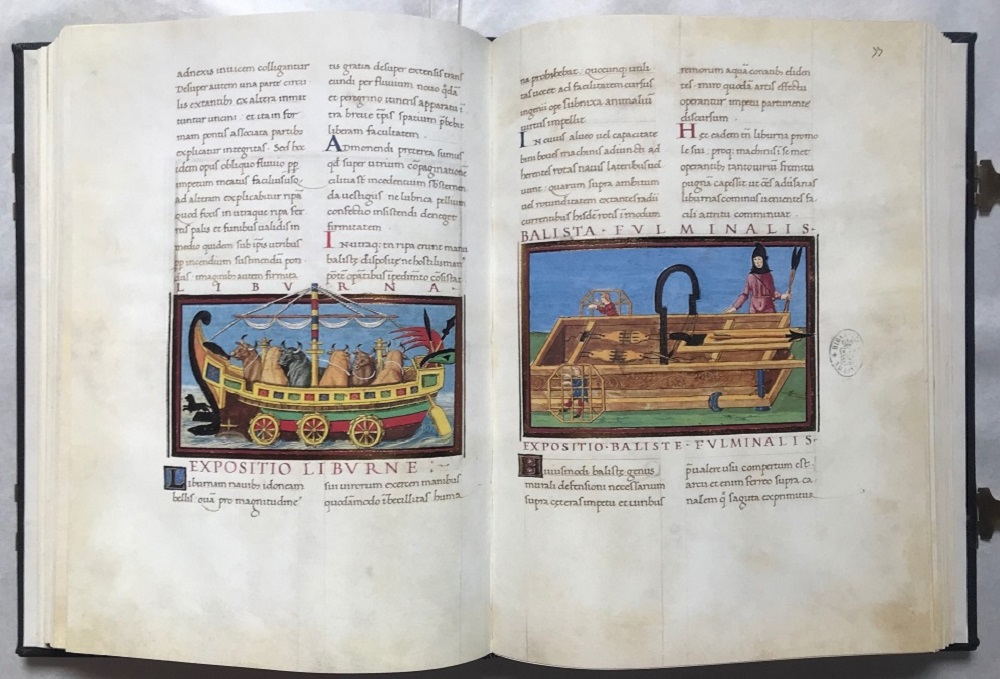 adnexis inuicem colligantur
Desuper autem una parte circu
lis extantib; ex altera inmit
tuntur uncini · et ita in for
mam pontis associata partib;
explicatur integritas · Sed hæc
idem opus obliquo fluuio pp
impetum meatus facilius
ad alteram explicabitur ripā
quod focis in utraque ripa fer
reis palis et funibus ualidis in
medio quidem sub ipis utribus
pp incendium sustinendi pon
deris · imaginib; autem firmita
tis gratia desuper extensis trans
eundi per fluuium nouo
et peregrino itineris apparatu ī
tra breue tp̄s spatum p̄bebit
liberam facultatem ·
Admonendi preterea sumus
qd̄ super utrium cōpaginatione
cilitia st̄ incedentium sbsternen
da uestigiis ne lubrica pellium
confectio insistendi deneget
firmitatem
In utraq; tn̄ ripa erunt manu
balistę disposite ne hostilis manꝰ
pōte opātibus īpedimto cōsistat
LIBVRNA·
EXPOSITIO LIBVRNE
Liburnam nauib; idoneam
bellis · quā pro magnitudine
sui uirorum exerceri manibus
quodāmodo ībecillitas huma
na prohibebat · quocunq; utili
tas uocet ad facilitatem cursus
ingenii ope subnixa animaliū
uirtus impellit
In cuius alueo uel capacitate
bini boues machinis adiuncti ad
herentes rotas nauis laterib;
uunt · quarum supra ambitum
uel rotunditatem extantes radii
currentibus hisdē rotis ī modum
remorum aquā conatib; eliden
tes · miro quodā artis effectu
operantur impetu parturiente
discursum ·
Hec eadem tn̄ liburna pro mo
le sui · proq; machinis ī se met
operātib; tanto uiriū fremitu
pugnā capessit ut oēs aduersarias
liburnas cominus uenientes fa
cili attritu comminuat ·
BALISTA·FVLMINALIS·
EXPOSITIO·BALISTE·FVLMINALIS·
Huiusmodi balistę genus
murali defensioni necessarium
supra cęteras impetu et uiribus
pualere usu compertum est·
arcu et enim ferreo supra ca
nalem q̄ sagitta exprimitur